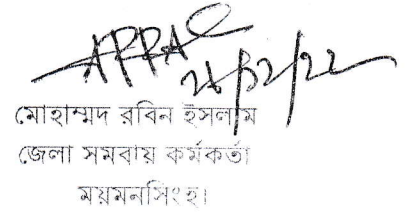 মোহাম্মদ রবিন ইসলাম
জেলা সমবায় কর্মকর্তা
ময়মনসিংহ।